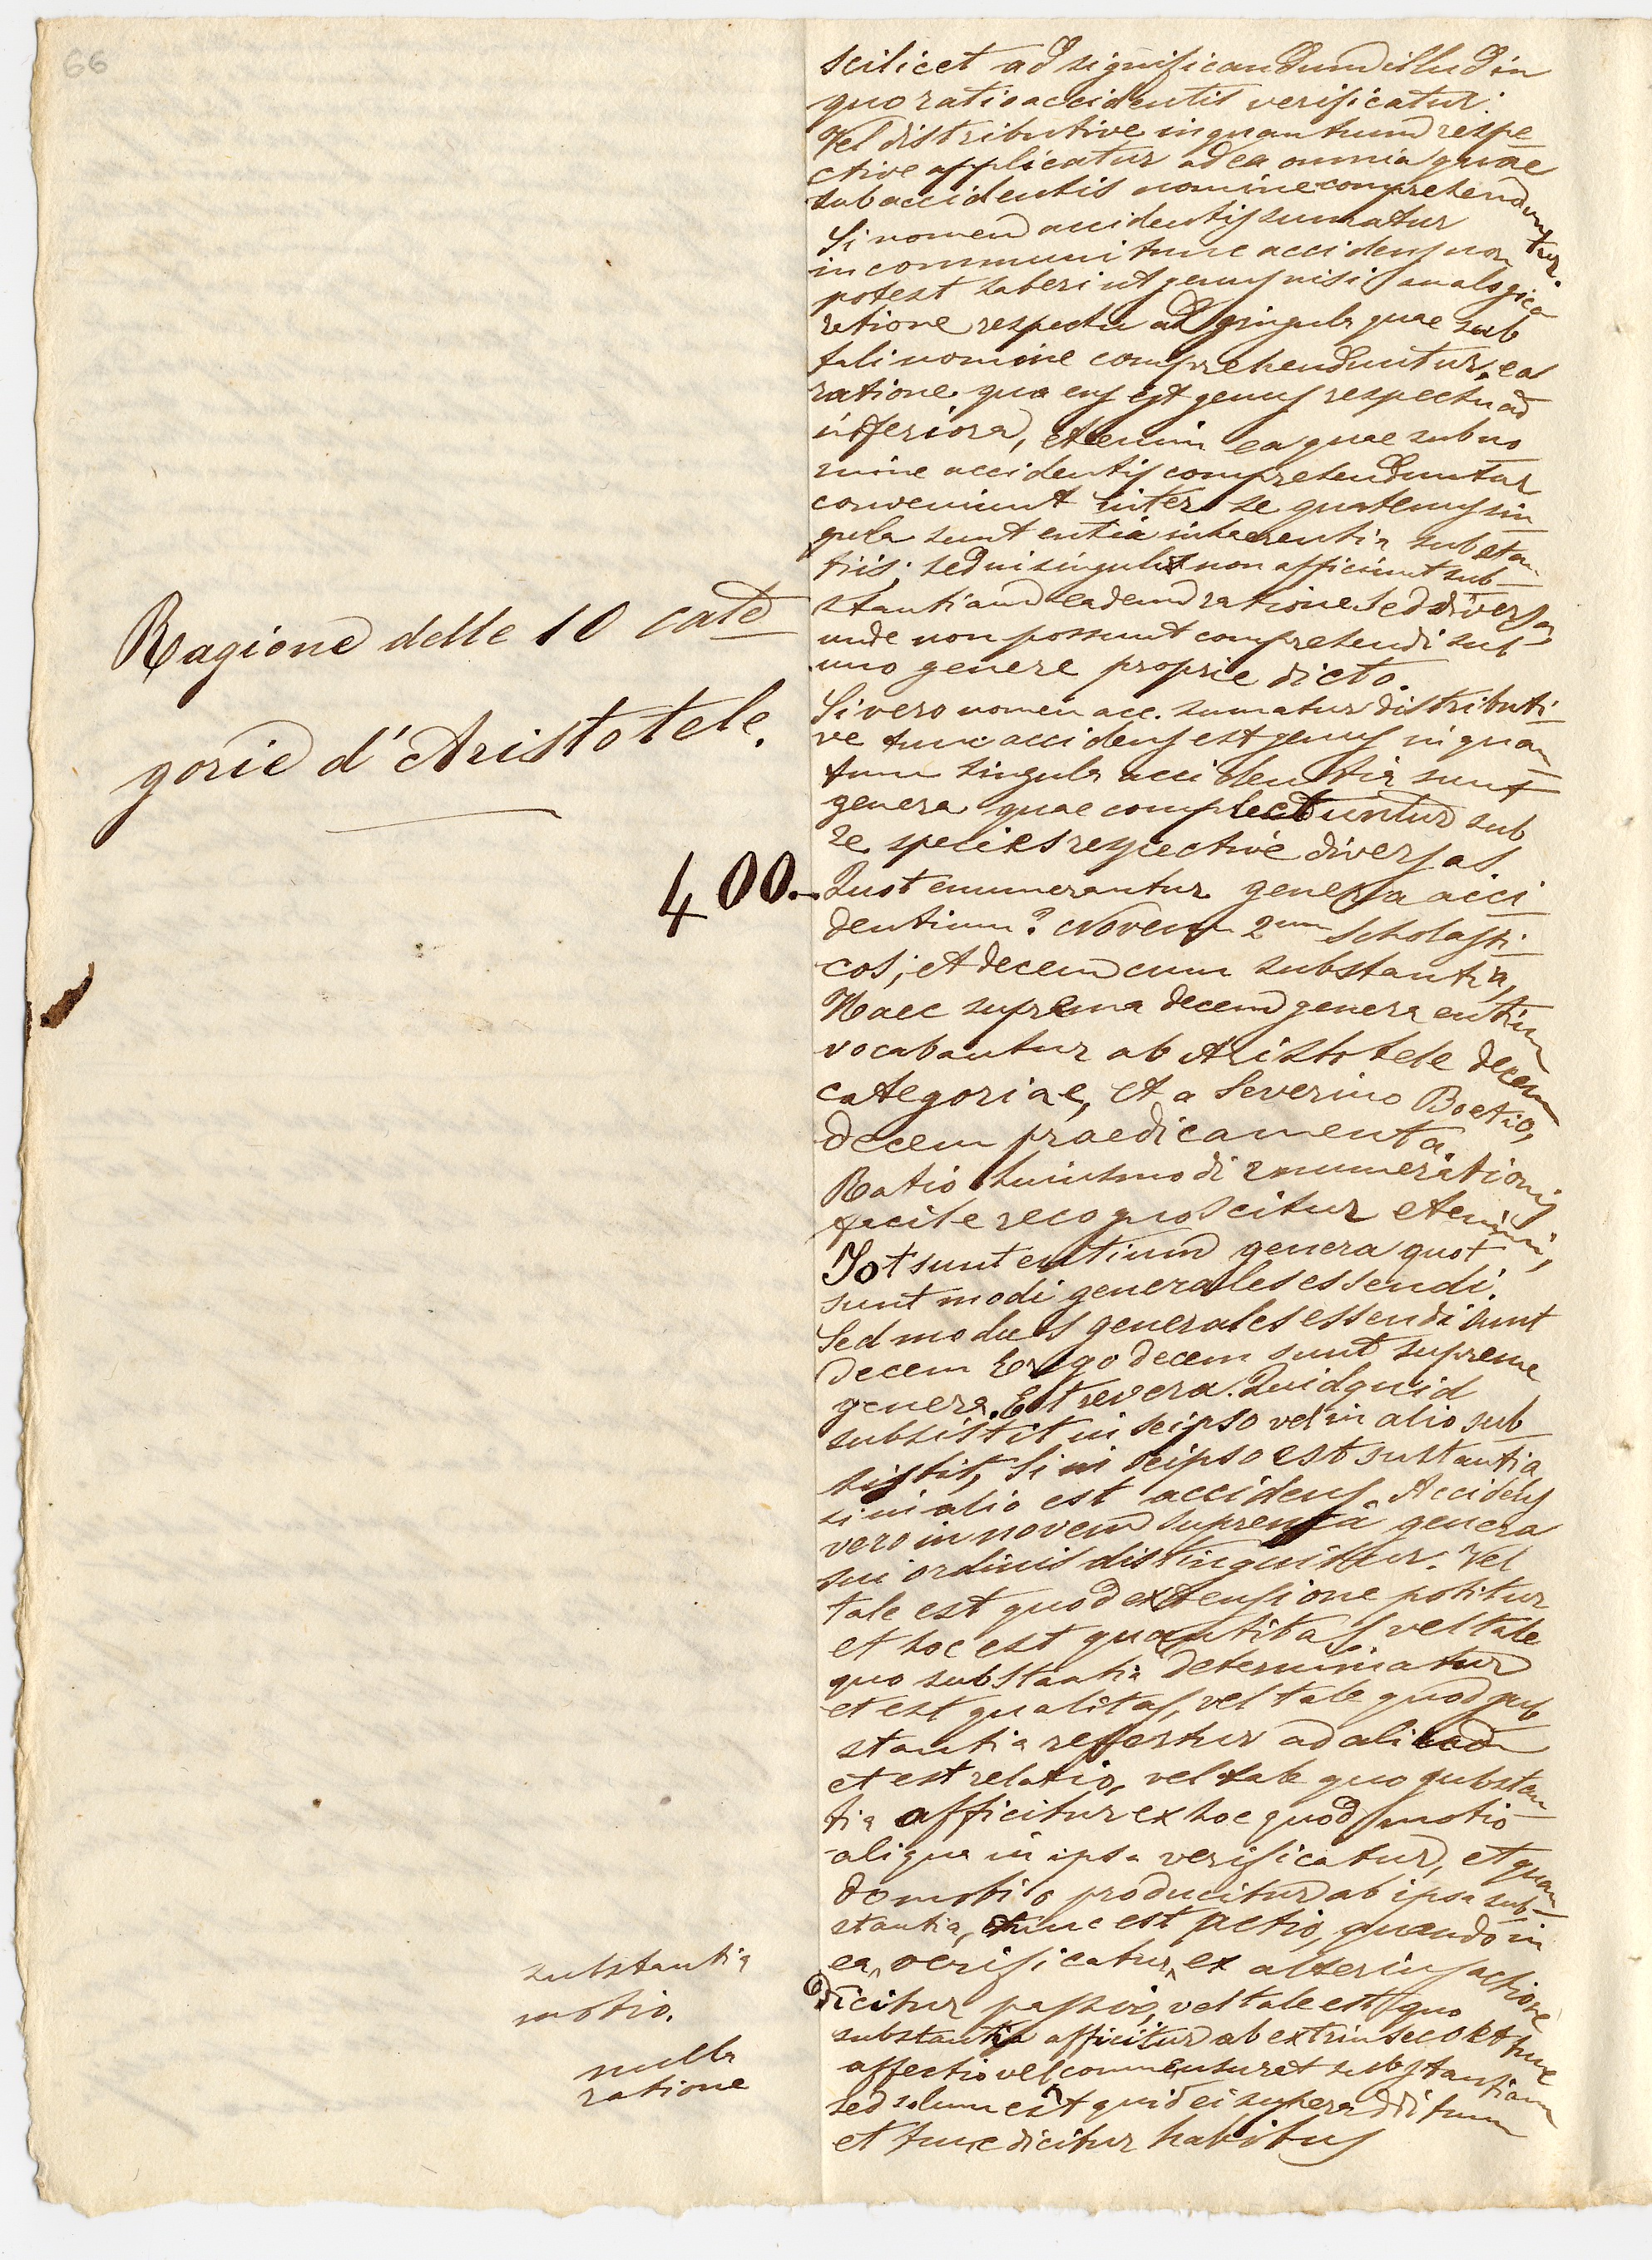 66
scilicet ad significandum illud in
quo ratio accidentis verificatur.
Vel distributive in quantum respe
ctive applicatur ad ea omnia quae
sub accidentis nomine comprehenduntur.
Si nomen accidentis sumatur
in communi tunc accidens non
potest haberi ut genus nisi analogica
ratione respectu ad singula quae sub
tali nomine comprehenduntur, ea
ratione qua ens est genus respectu ad
inferiora, etenim ea quae sub no
mine accidentis comprehenduntur
conveniunt inter se quatenus sin
gula sunt entia inhaerentia substan
tiis; sed ut singula non afficiunt sub-
stantiam eadem ratione sed diversa,
unde non possunt comprehendi sub
uno genere proprie dicto.
Si vero nomen acc. sumatur distributi
ve tunc accidens est genus in quan
tum singula accidentia sunt
genera quae complectuntur sub
se species respective diversas.
Ragione delle 10 cate
gorie d'Aristotele.
400. Quot enumerantur genera acci
dentium? Novem 2um Scholasti
cos; et decem cum substantia,
Haec suprema decem genera entium
vocabantur ab Aristotele decem
categoriae, et a Severino Boetio,
decem praedicamenta
Ratio huiusmodi enumerationis
facile recognoscitur etenim,
Tot sunt entium genera quot
sunt modi generales essendi.
Sed modus generales essendi sunt
decem Ergo decem sunt supreme
genera. Et revera. Quidquid
subsistit in seipso vel in alio sub
sistit, Si in seipso est sustantia
si in alio est accidens. Accidens
vero in novem suprema genera
sui ordinis distinguitur. Vel
tale est quod extensione potitur
et hoc est quantitas vel tale
quo substantia determinatur
et est qualitas, vel tale quod sub
stantia refertur ad aliud
et est relatio, vel tale quo substan
tia afficitur ex hoc quod motio
aliqua in ipsa verificatur, et quan
do motio producitur ab ipsa sub-
stantia, tunc est actio, quando in
ea verificatur ex alterius actione
dicitur passio, vel tale est quo
substantia afficitur ab extrinseco et tunc
affectio vel commensurat substantiam
sed solum est quid ei superadditum
et tunc dicitur habitus
substantia
motio.
nulla
ratione